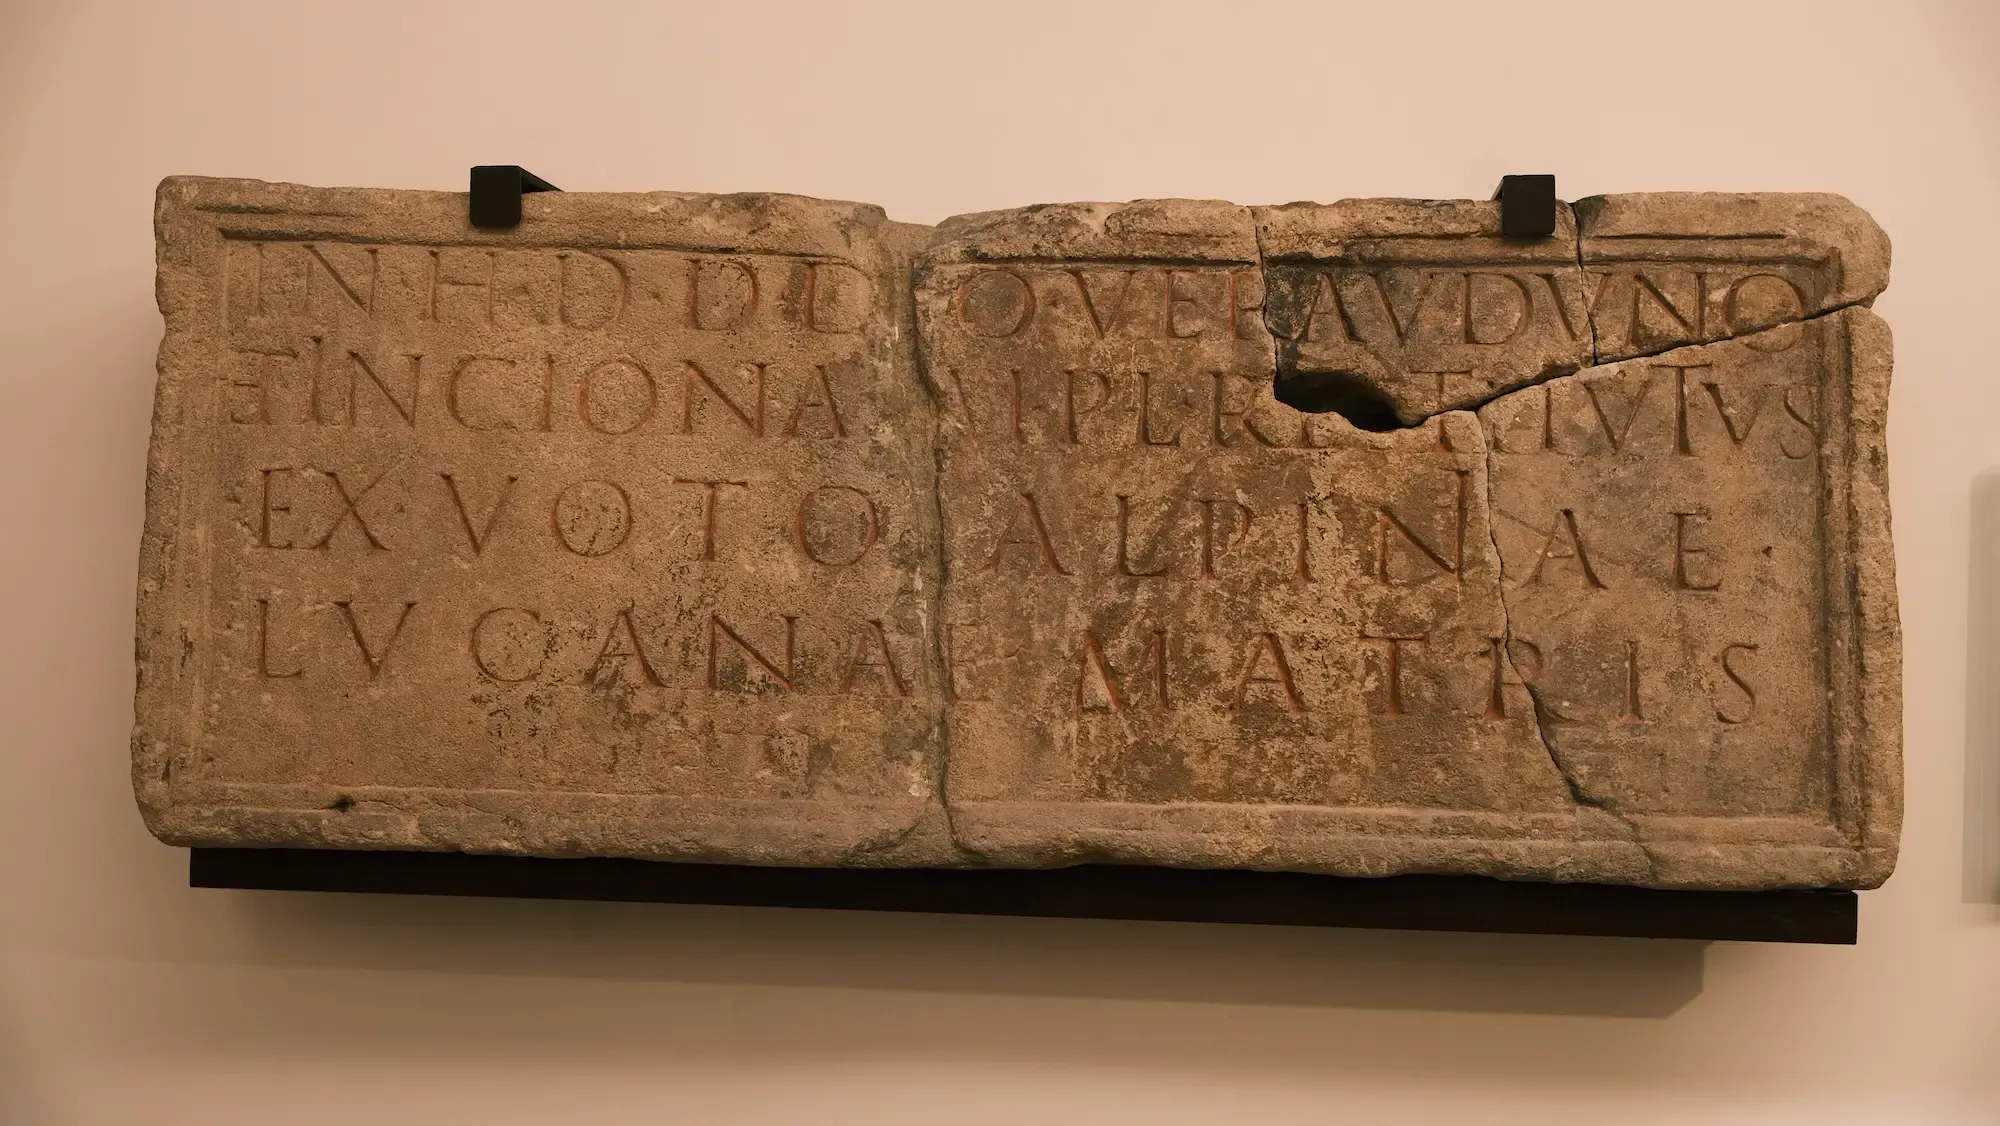 IN·H·D·D·DEO·VERAVDVNO
ET INCIONAE M·PL·RESTITVTVS
EX·VOTO ALPINIAE·
LVCANAE MATRIS